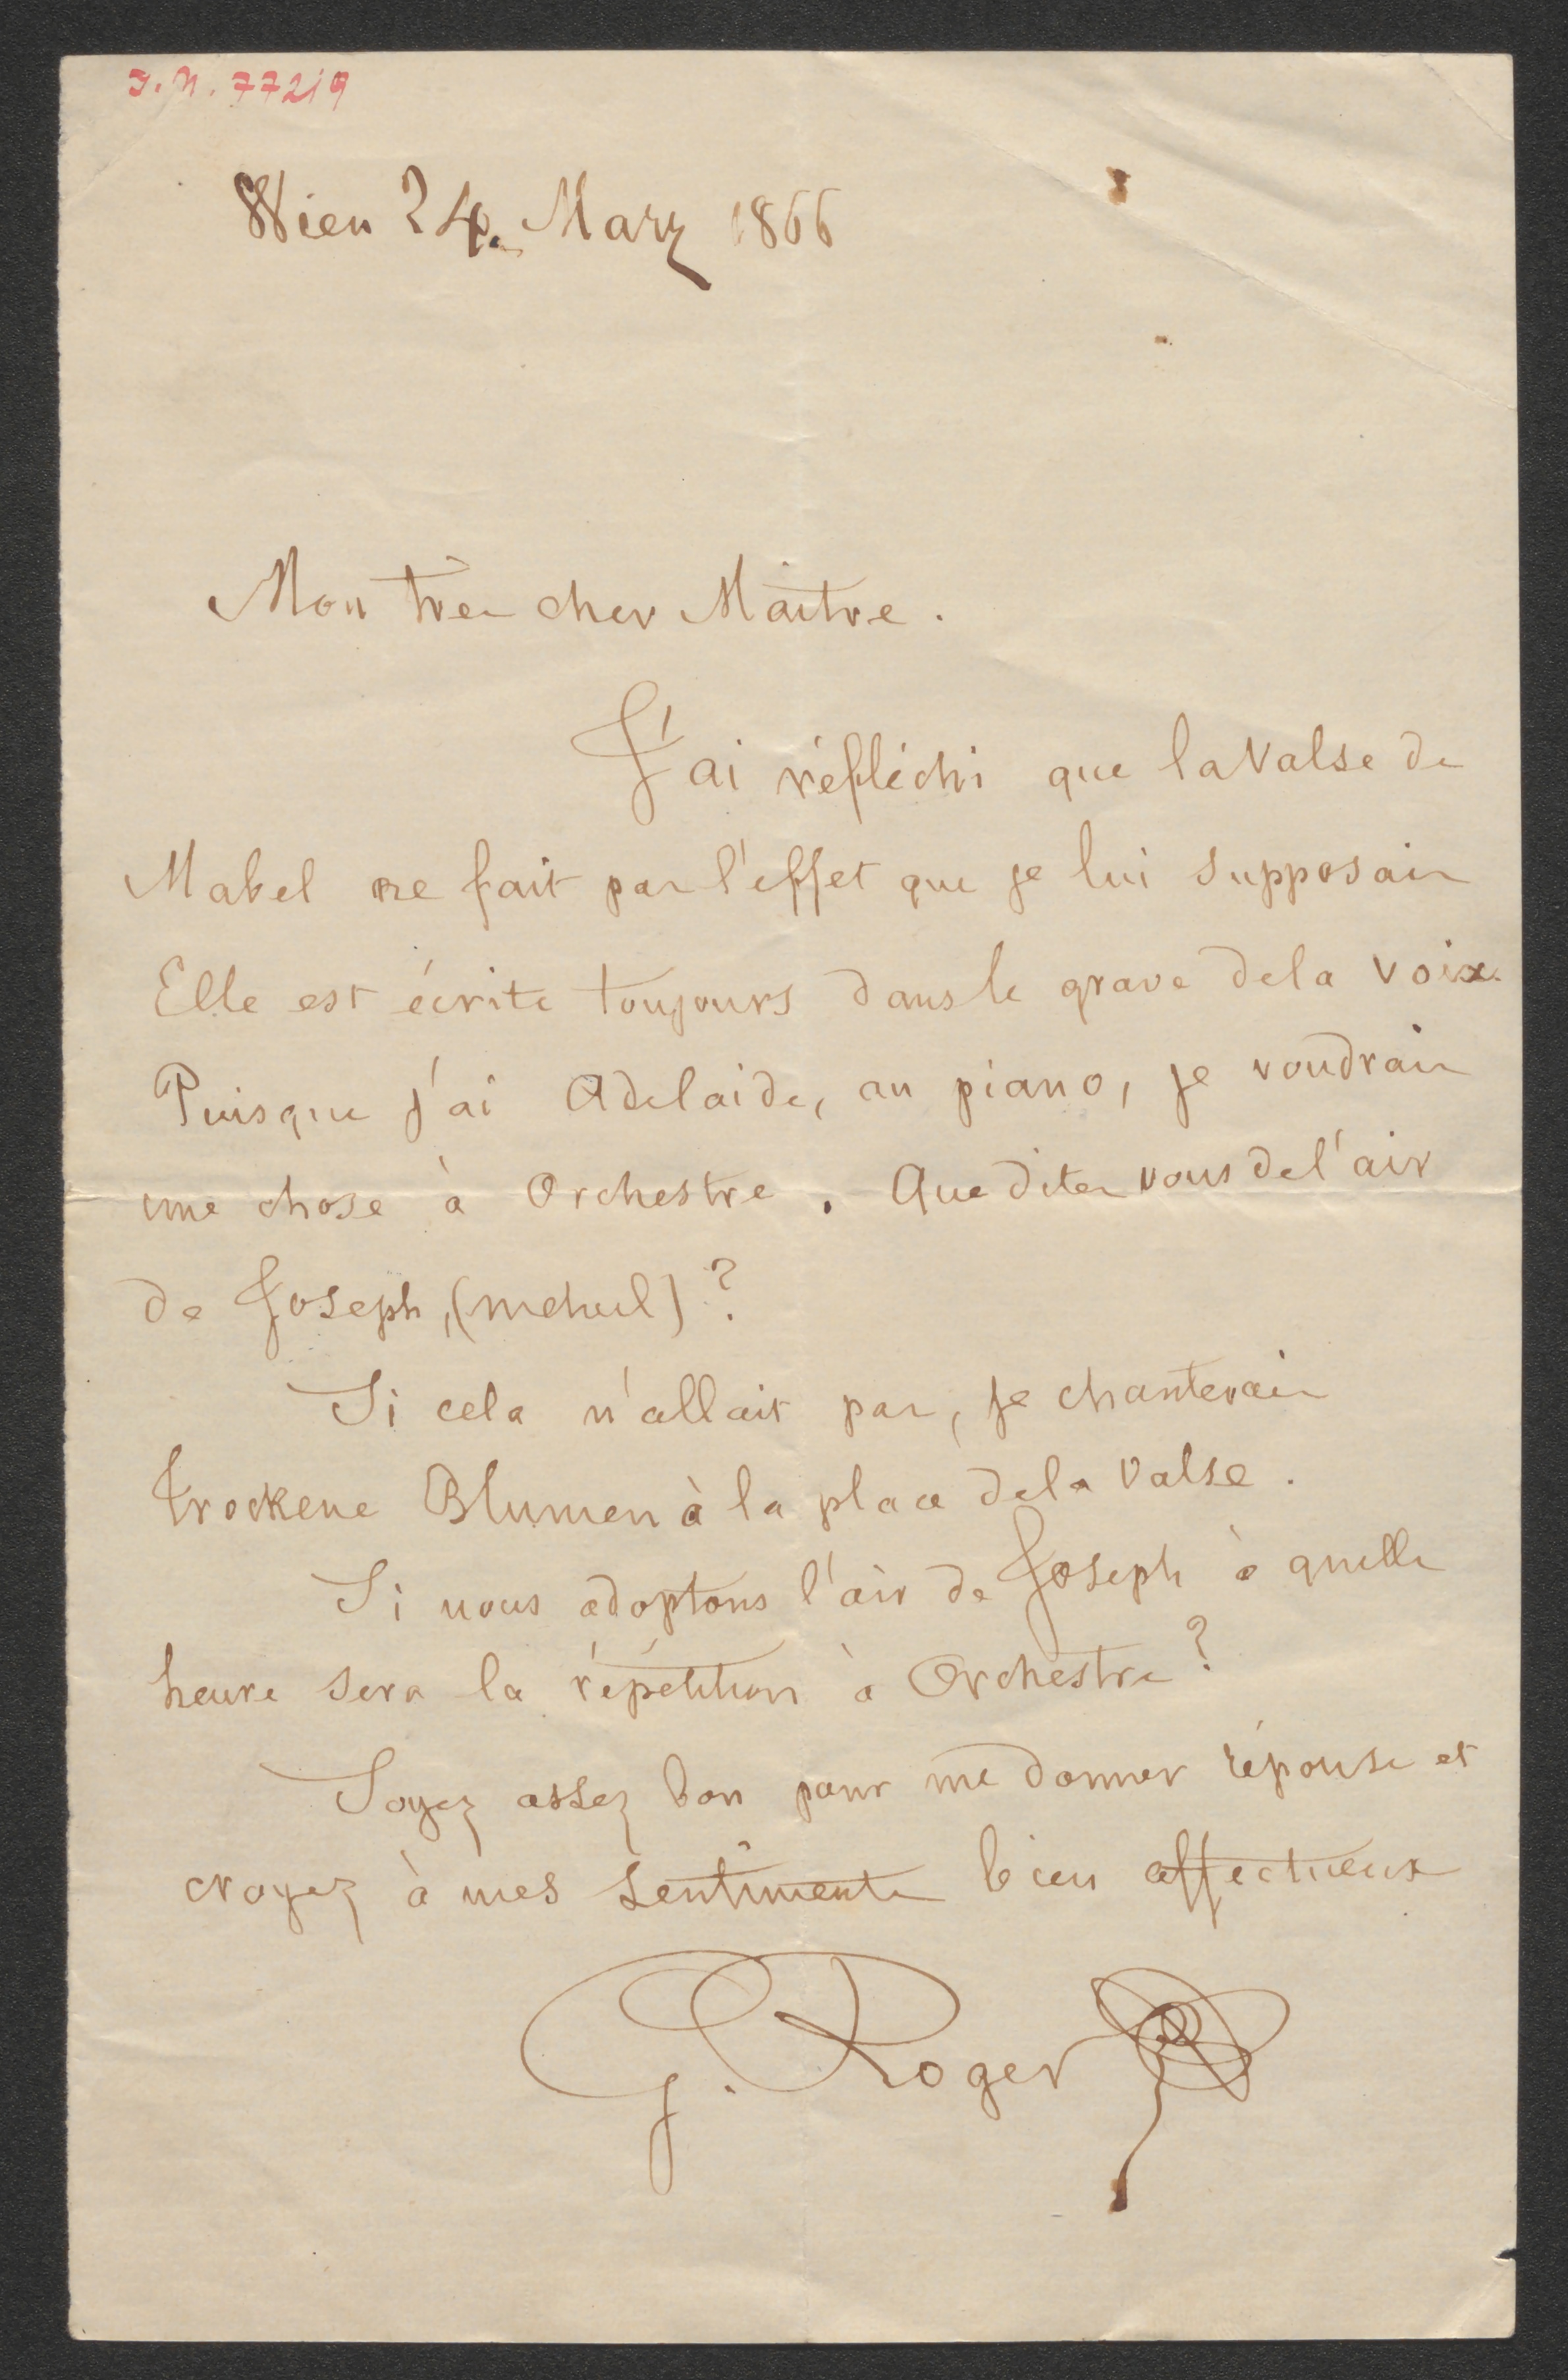 J.N. 77219
Wien 24. Marz 1866
Mon très cher Maître.
J'ai réfléchi que la Valse de
Mabel ne fait pas l'effet que je lui supposais
Elle est écrite toujours dans le grave de la voix.
Puisque j'ai Adelaide, au piano, je voudrais
une chose à Orchestre. Que dites vous de l'air
de Joseph, (mehul)?
Si cela n'allait pas, je chanterais
trockene Blumen à la place de la valse.
Si nous adoptons l'air de Joseph à quelle
heure sera la répétition à Orchestre?
Soyez assez bon pour me donner réponse et
croyez à mes sentiments bien affectueux
G. Roger